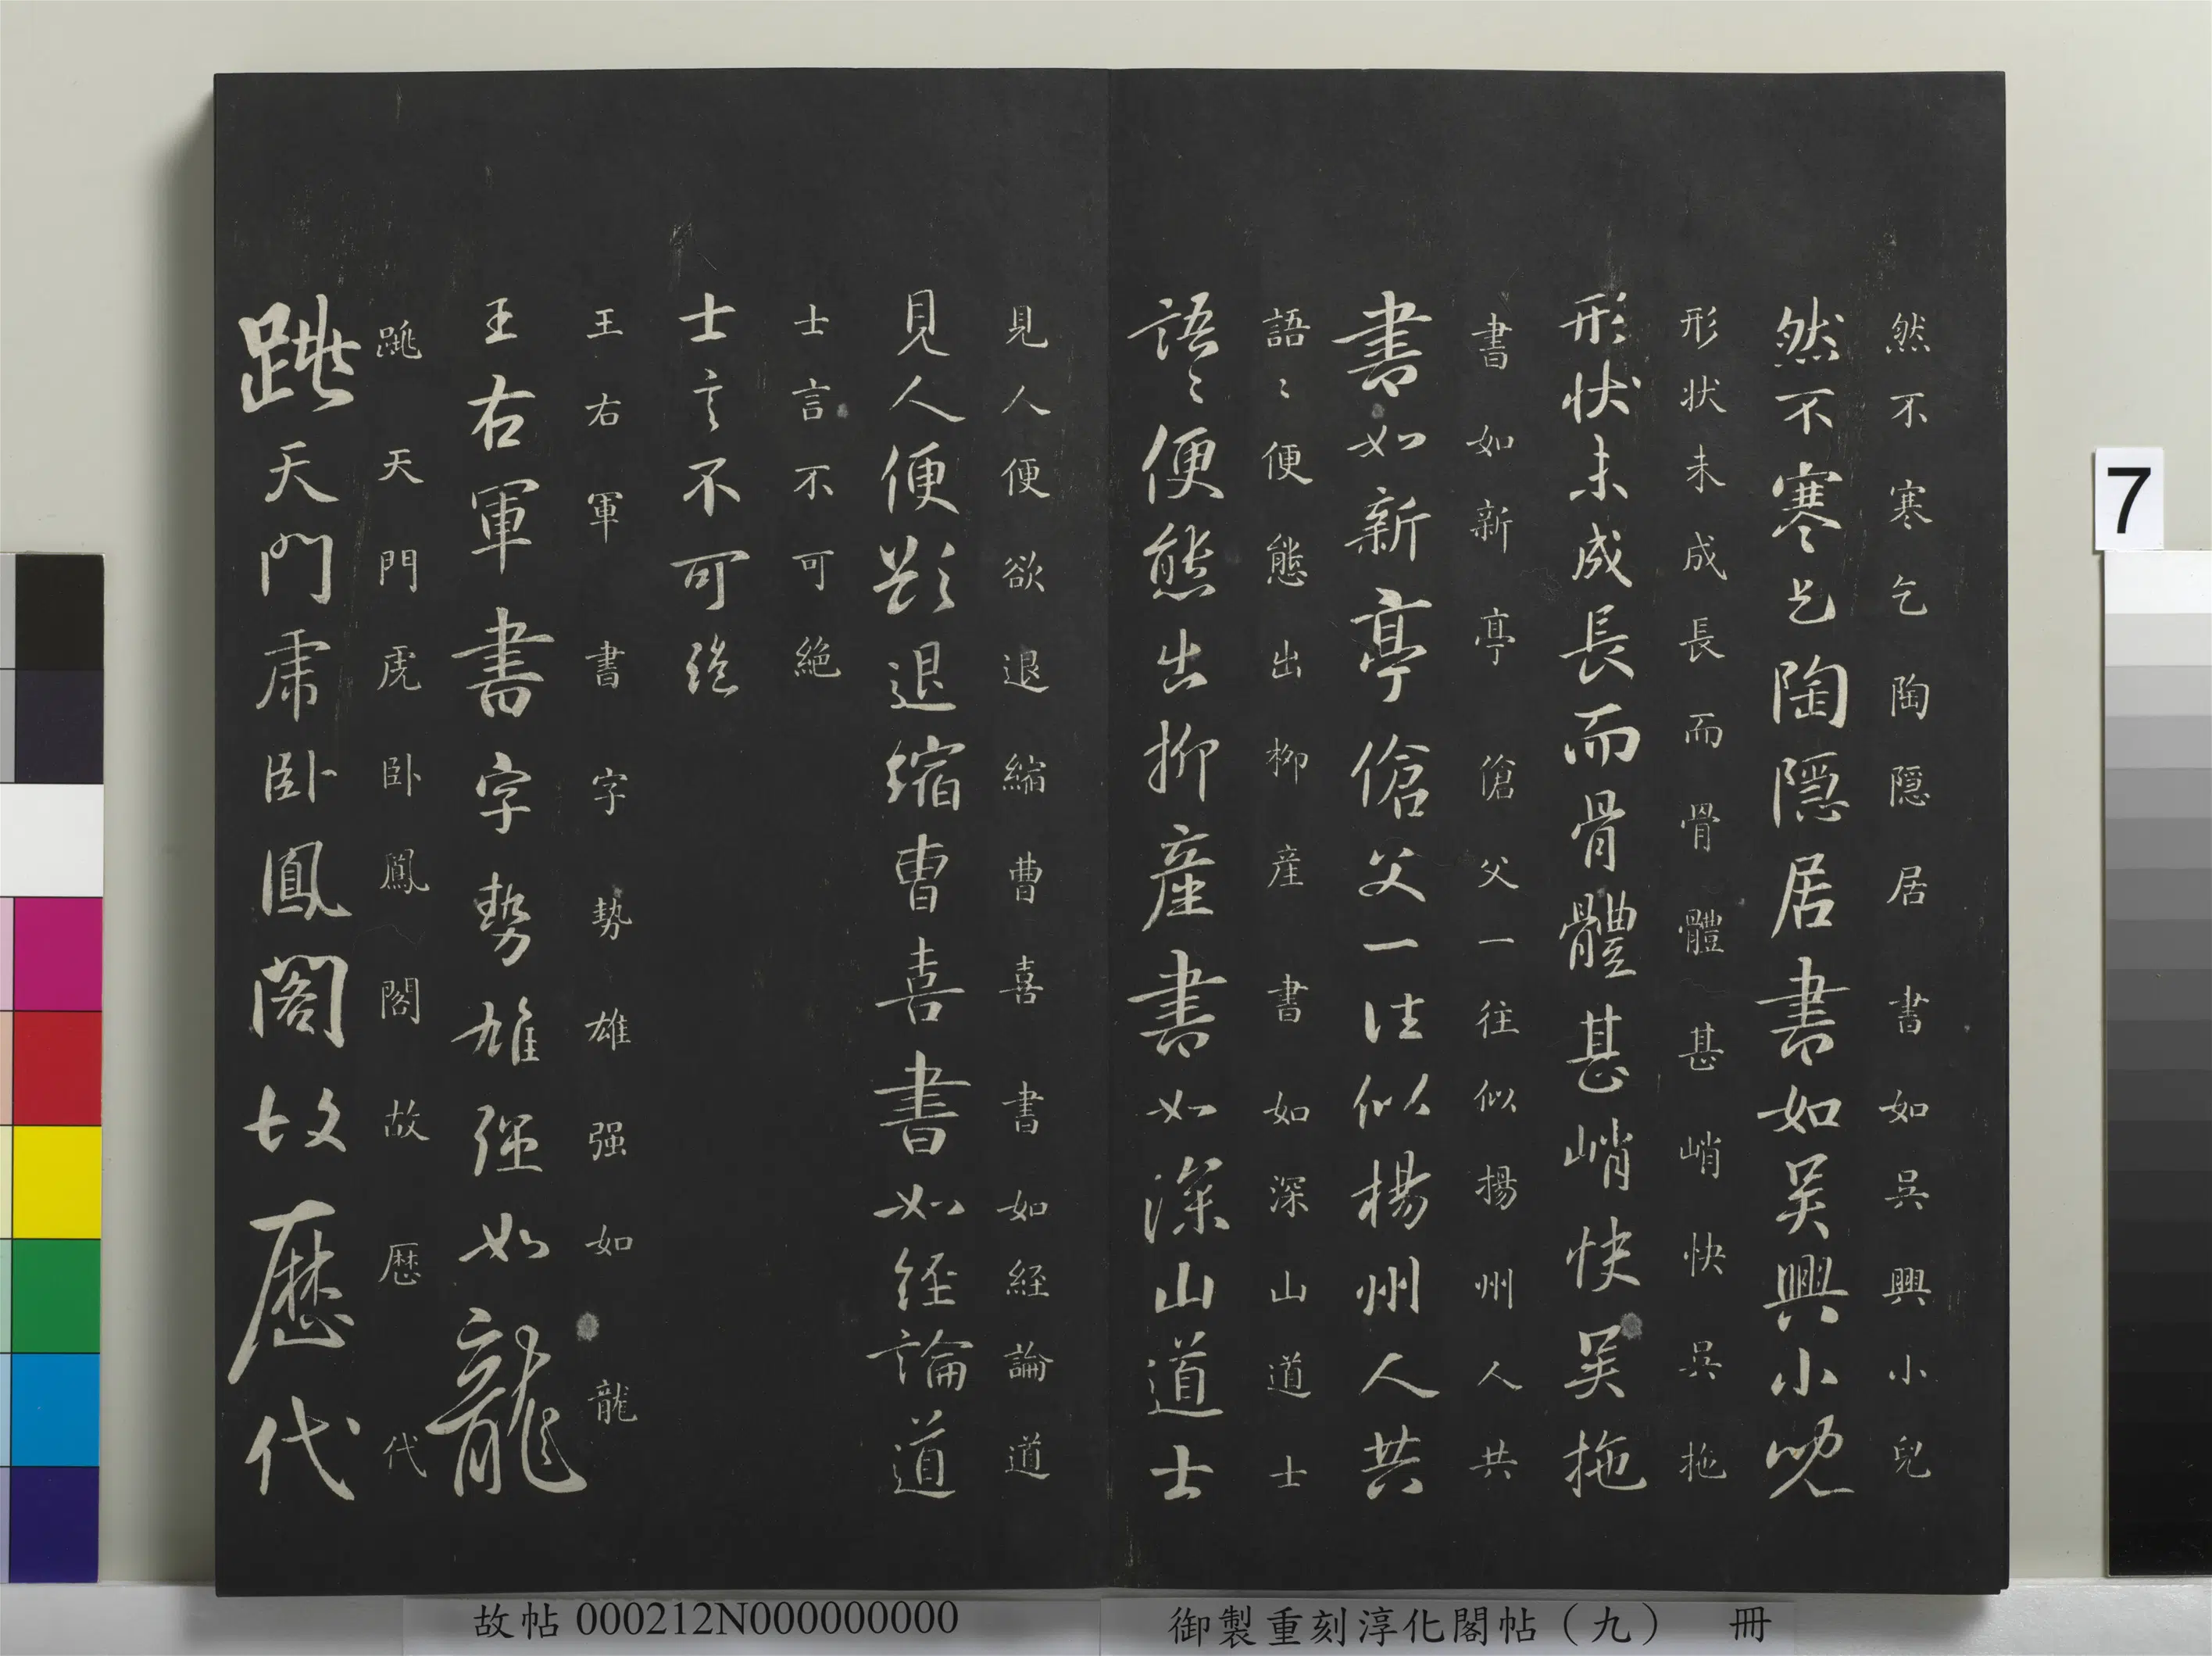 然不寒乞陶隱居書如吳興小兒
然不寒乞陶隱居書如吳興小兒
形状未成長而骨體甚峭快吳拖
形状未成長而骨體甚峭快吳拖
書如新亭傖父一往似揚州人共
書如新亭傖父一往似楊州人共
語〻便態出柳産書如深山道士
語〻便態出柳産書如深山道士
見人便欲退縮曹喜書如経論道
見人便欲退縮曹喜書如経論道
士言不可絶
士言不可絶
王右軍書字勢雄强如龍
王右軍書字勢雄强如龍
跳天門虎卧鳳閣故歴代
跳天門虎卧鳳閣故歴代
7
故帖000212N000000000
御製重刻淳化閣帖（九） 冊